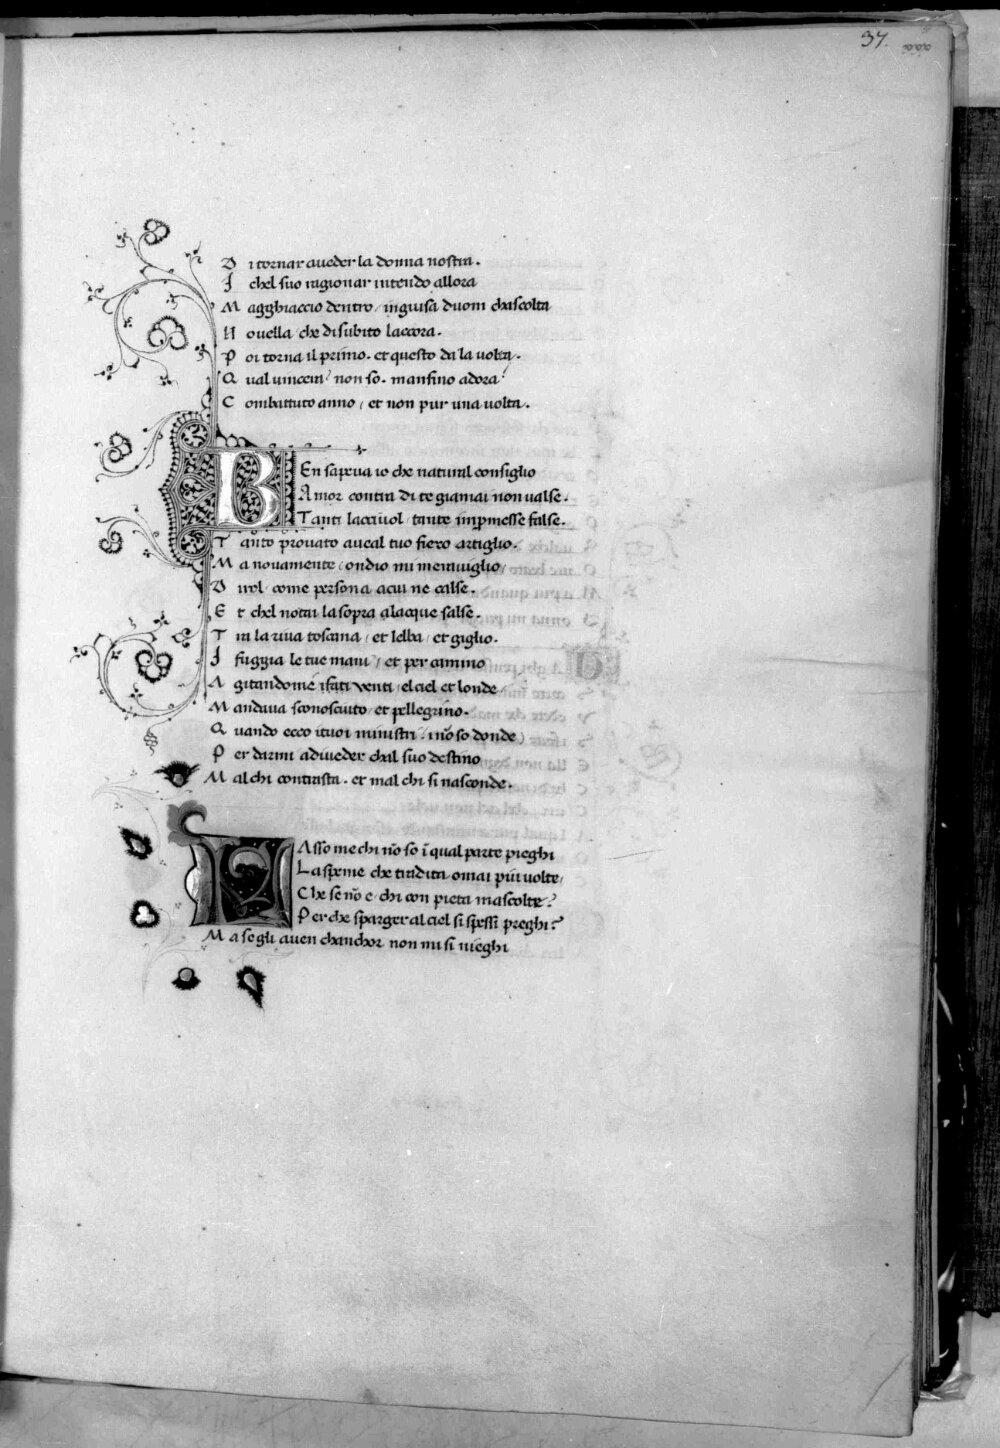 37.
D i tornar aueder la donna nostra.
I chel suo ragionar intendo allora
M agghiaccio dentro / inguisa duom chascolta
N ouella / che di subito laccora.
P oi torna il primo. et questo da la uolta.
Q ual uincera / non so. mansino adora
C ombattuto anno / et non pur una uolta.
BEn sapeua io che natural consiglio
Amor contra di te giamai non ualse.
Tanti lacciuol / tante impmesse false.
T anto prouato aueal tuo fiero artiglio.
M a nouamente / ondio mi merauiglio
D irol come persona acui ne calse.
E t chel notai la sopra alacque salse.
T ra la riua toscana / et lelba / et giglio.
I fuggia le tue mani / et per camino
A gitandomē i fati uenti / el ciel et londe
M andaua sconosciuto / et pellegrino.
Q uando ecco ituoi ministri / i nō so donde
P er darmi adiueder chal suo destino
M al chi contrasta. et mal chi si nasconde.
LAsso me chi nō so ī qual parte pieghi
La speme che tradita omai più uolte /
Che se nō e / chi con pieta mascolte?
Perche sparger al ciel si spessi preghi?
M a segli auen chanchor non mi si nieghi